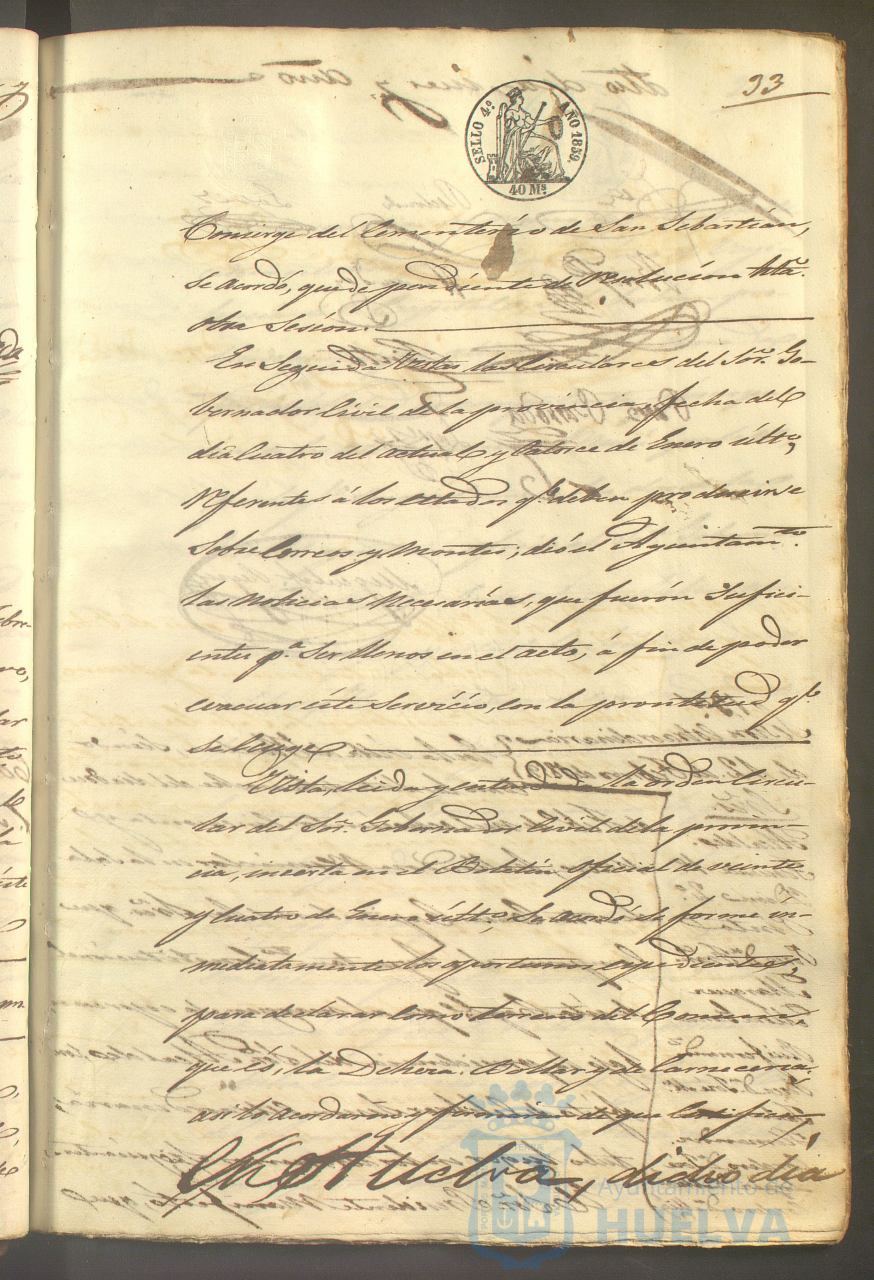 93
SELLO 4.º AÑO 1859.
40 Ms.
Conserge del Sementerio de San Sebastian,
se acordó, quede pendiente de resolucion hta.
otra Sesion.
En Seguida Vistas las Circulares del Sor. Go-
bernador Civil de la provincia, fecha del
dia Cuatro del actual y Catorce de Enero últo,
referentes á los estados qe. deben producirse
Sobre Correos y Montes, dió el Ayuntamto.
las noticias necesarias, que fuerón Sufici-
entes pa. ser llenos en el acto, á fin de poder
evacuar éste Servicio, con la prontitud qe.
se exige
Vista, leida y entendida la orden Circu-
lar del Sor. Gobernador Civil de la provin-
cia, incerta en el Boletin oficial de veinte
y Cuatro de Enero últo, Se acordó se forme in-
mediatamente los oportunos expedientes,
para declarar como terreno del Comun,
que lo és, la Dehesa Bollar y de Carneceria
asi lo acordaron y firman de que Certifico,
En Huelva, dicho dia
Ayuntamiento de
HUELVA